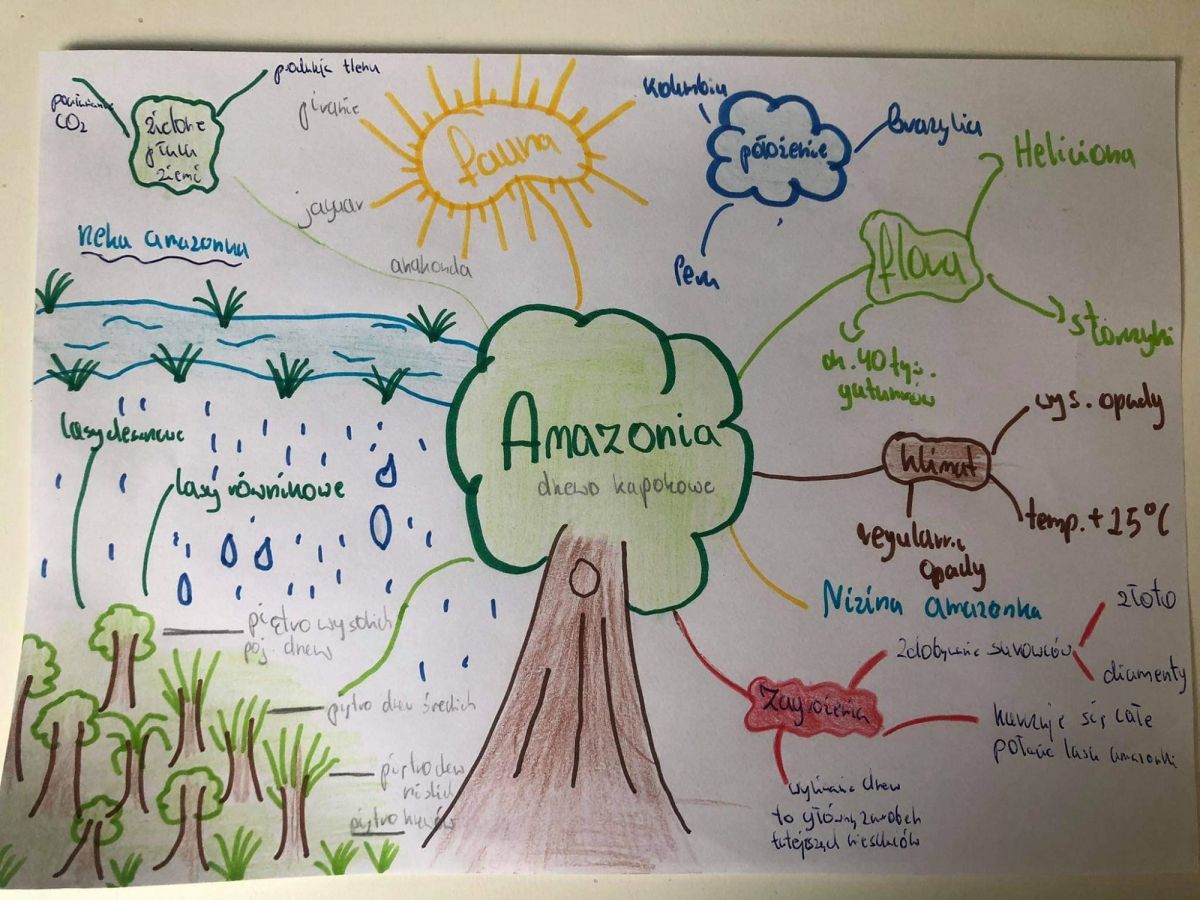 produkcja tlenu
CO2
zielone
płuca
ziemi
piranie
jaguar
anakonda
fauna
kolumbia
położenie
Brazylia
Peru
Heliciona
flora
storczyki
ok. 40 tyś.
gatunków
Reka amazonka
Amazonia
drzewo kapokowe
lasy deszczowe
lasy równikowe
wys. opady
klimat
temp. + 25°C
regularne
opady
Nizina amazonka
złoto
zdobywanie surowców
diamenty
Zagrożenia
karczuje się całe
połacie lasu amazonki
wycinanie drzew
to główny zarobek
tutejszych mieszkańców
piętro wysokich
poj. drzew
piętro drzew średnich
piętro drzew
niskich
piętro krzewów